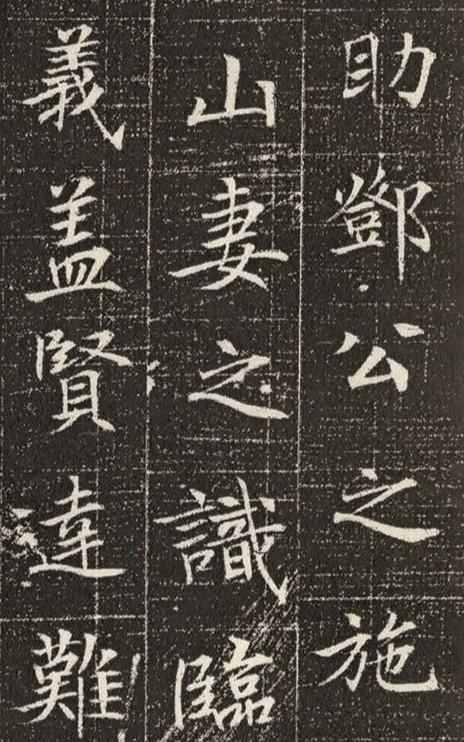 助鄧公之施
山妻之識臨
義盖賢違難